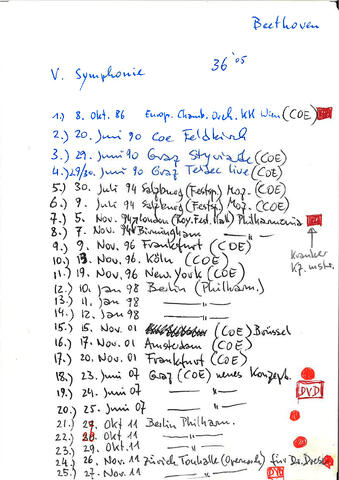 Beethoven
V. Symphonie 36'05
1.) 8. Okt. 86 Europ. Chamb. Orch. KK Wien (COE)
2.) 20. Juni 90 COE Feldkirch
3.) 29. Juni 90 Graz Styriarte (COE)
4.) 29/30. Juni 90 Graz Teldec live (COE)
5.) 30. Juli 94 Salzburg (Festsp.) Moz. (COE)
6.) 9. Juli 94 Salzburg (Festsp.) Moz. (COE)
7.) 5. Nov. 94 London (Roy. Fest. Hall) Philharmonia
8.) 7. Nov. 94 Birmingham —"—
9.) 9. Nov. 96 Frankfurt (COE)
Kranker
10.) Nov. 96 Köln (COE)
11.) 19. Nov. 96 New York (COE)
12.) 10. Jan 98 Berlin (Philharm.)
13.) 11. Jan 98 —"—
14.) 12. Jan 98 —"—
15.) 15. Nov. 01 (COE) Brüssel
16.) 17. Nov. 01 Amsterdam (COE)
17.) 20. Nov. 01 Frankfurt (COE)
18.) 23. Juni 07 Graz (COE) neues Konzept.
19.) 24. Juni 07 —"— DVD
20.) 25. Juni 07 —"—
21.) Okt 11 Berlin Philharm.
22.) 28. Okt 11 —"—
23.) 29. Okt 11 —"—
24.) 26. Nov. 11 Zürich Tonhalle (Opernorch.) für
25.) 27. Nov. 11 —"—